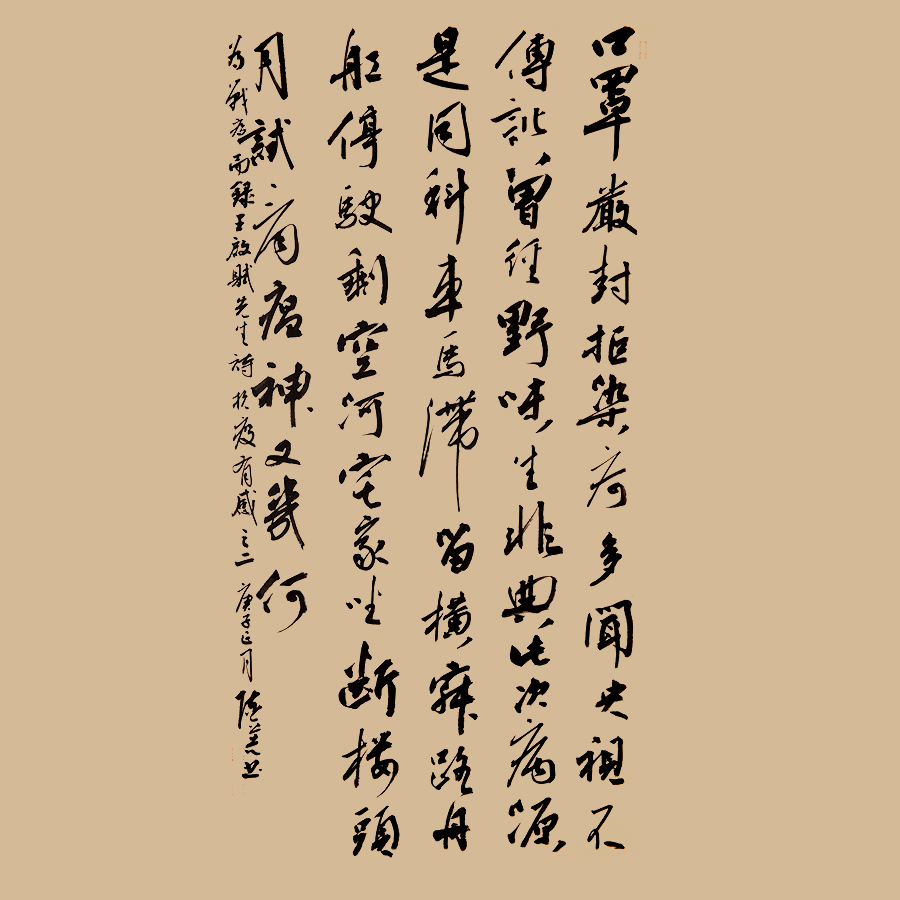 口罩嚴封拒染疴多聞央視不
傳訛曾經野味生非典此次病源
是同科車馬滯留橫寂路舟
舡停駛剩空河宅家坐斷樓頭
月試問瘟神又幾何
為戰疫而錄王啟賦先生詩抗疫有感之二 庚子正月 書